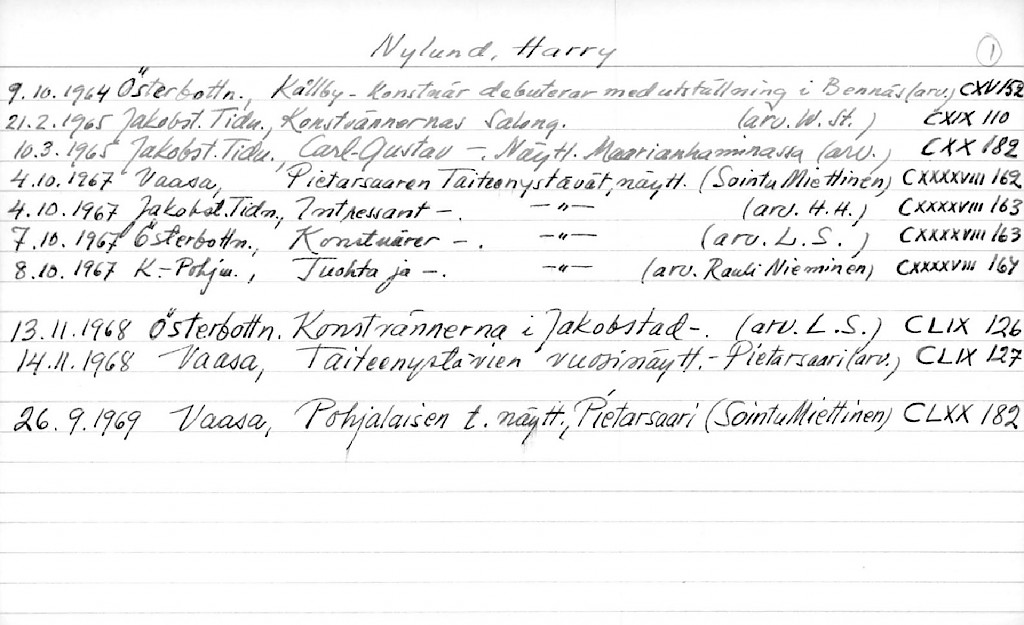 Nylund, Harry 1
9.10.1964 Österbottn., Kållby-konstnär debuterar med utställning i Bennäs (arv.) CXV 152
21.2.1965 Jakobst. Tidn., Konstvännernas Salong. (arv. W. St.) CXIX 110
10.3.1965 Jakobst. Tidn., Carl-Gustav —. Näytt. Maarianhaminassa (arv.) CXX 182
4.10.1967 Vaasa, Pietarsaaren Taiteenystävät, näytt. (Sointu Miettinen) CXXXXVIII 162
4.10.1967 Jakobst. Tidn., Intressant —. —"— (arv. H.H.) CXXXXVIII 163
7.10.1967 Österbottn., Konstnärer —. —"— (arv. L.S.) CXXXXVIII 163
8.10.1967 K.-Pohjm., Tuohta ja —. —"— (arv. Rauli Nieminen) CXXXXVIII 164
13.11.1968 Österbottn. Konstvännerna i Jakobstad —. (arv. L.S.) CLIX 126
14.11.1968 Vaasa, Taiteenystävien vuosinäytt. - Pietarsaari (arv.) CLIX 127
26.9.1969 Vaasa, Pohjalaisen t. näytt., Pietarsaari (Sointu Miettinen) CLXX 182